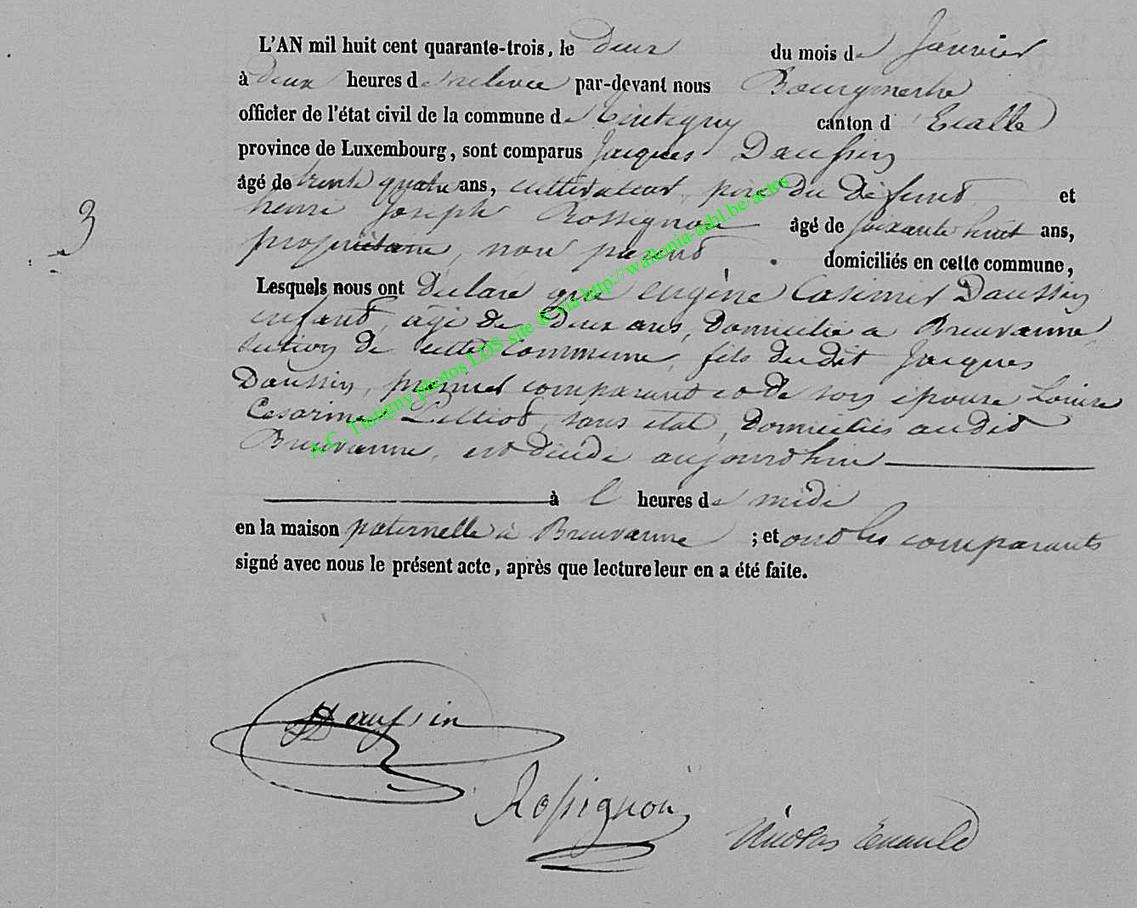 L'AN mil huit cent quarante-trois, le deux du mois de Janvier
à deux heures de relevée par-devant nous Bourgmestre
officier de l'état civil de la commune de Tintigny canton d'Etalle
province de Luxembourg, sont comparus Jacques Daussin
âgé de trente quatre ans, cultivateur, père du défunt et
3
henri Joseph Rossignon âgé de soixante huit ans,
propriétaire, non parent domiciliés en cette commune,
Lesquels nous ont déclaré que eugène Casimir Daussin
enfant, agé de deux ans, domicilié à Breuvanne,
section de cette commune, fils dudit Jacques
Daussin, premier comparant et de son épouse Louise
Cesarine sans etat, domiciliés audit
Breuvanne, est décédé aujourd'hui
à heures de midi
en la maison paternelle à Breuvanne ; et ont les comparants
signé avec nous le présent acte, après que lecture leur en a été faite.
Daussin
Rossignon
Nicolas
A.C. Tintigny photos LDS site via http://wallonia-asbl.be/actes